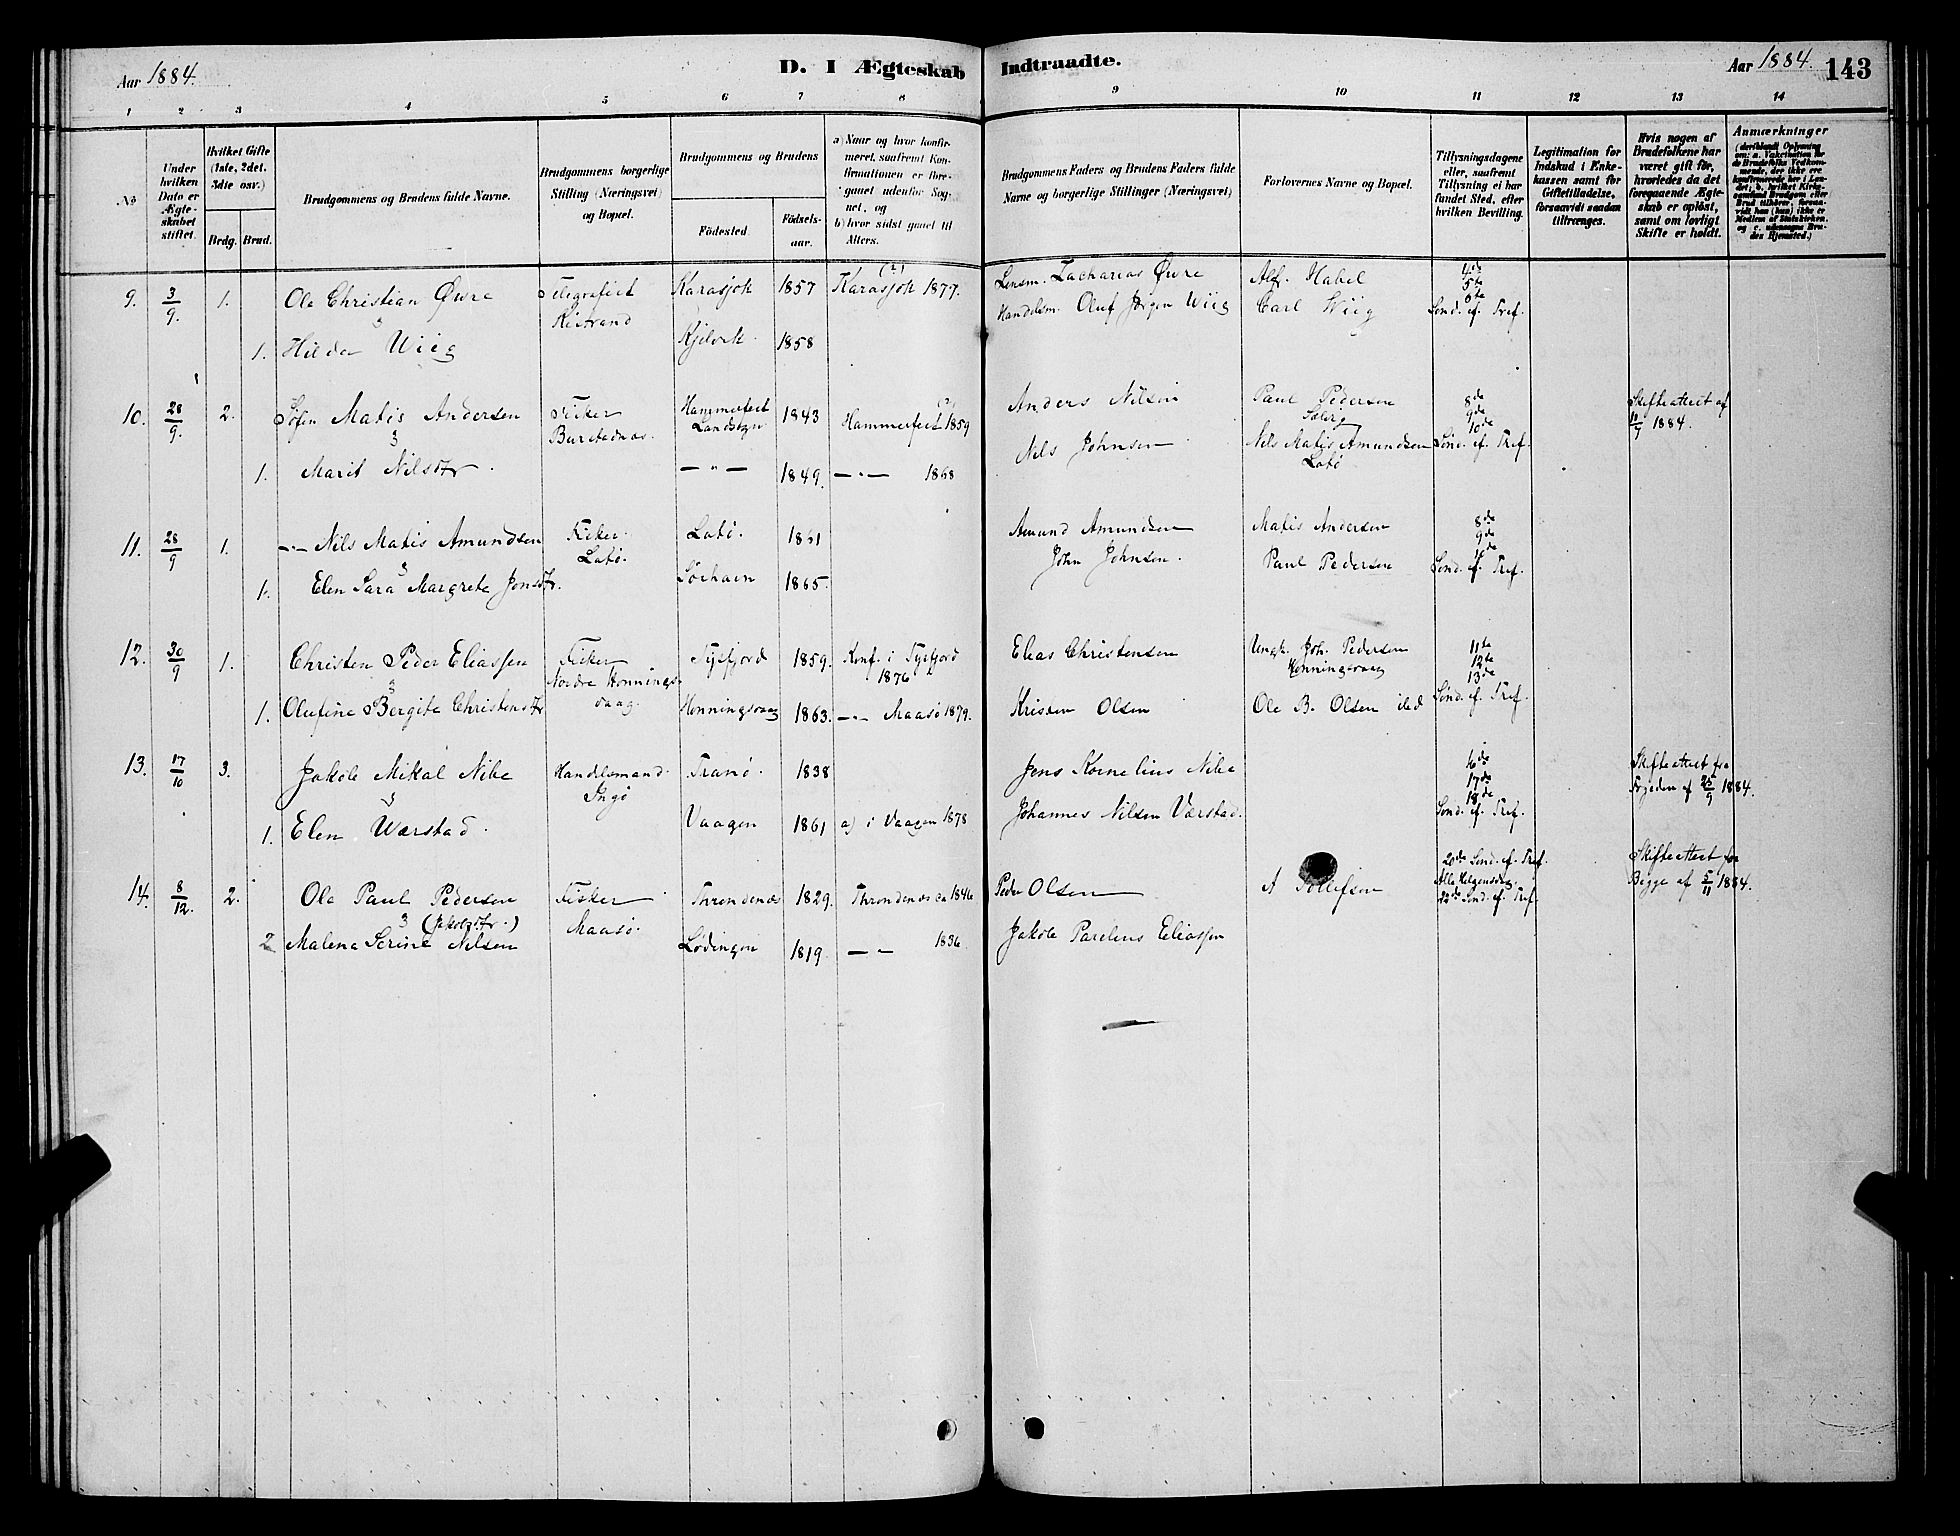 Aar 1884. D. I Ægteskab Indtraadte. Aar 1884. 143
1 2 3 4 5 6 7 8 9 10 11 12 13 14
No
Under hvilken Dato er Ægteskabet stiftet.
Hvilket Gifte (1ste, 2det, 3die osv.)
Brdg. Brud.
Brudgommens og Brudens fulde Navne.
Brudgommens borgerlige Stilling (Næringsvei) og Bopæl.
Brudgommens og Brudens
Fødested. Fødselsaar.
a) Naar og hvor konfirmeret, saafremt Konfirmationen er foregaaet udenfor Sognet, og
b) hvor sidst gaaet til Alters.
Brudgommens Faders og Brudens Faders fulde Navne og borgerlige Stillinger (Næringsvei)
Forlovernes Navne og Bopæl.
Tillysningsdagene eller, saafremt Tillysning ei har fundet Sted, efter hvilken Bevilling.
Legitimation for Indskud i Enkekassen samt for Giftetilladelse, forsaavidt saadan tiltrænges.
Hvis nogen af Brudefolkene har været gift før, hvorledes da det foregaaende Ægteskab er opløst, samt om lovligt Skifte er holdt.
Anmærkninger
9. 3/9. 1. Ola Christian Øvre Telegrafist Kistrand Karasjok 1857 Karasjok 1877. Lensm. Zacharias Øvre Alf. Habel 4de 5te 6te Sønd. ef. Tref.
1. Hilda Wiig Kjelvik 1858 Handelsm. Oluf Jørgen Wiig Carl Wiig
10. 28/9. 2. Matis Andersen Fisker Hammerfest Landsogn 1843 Hammerfest 1859 Anders Nilsen Paul Pedersen 8de 9de 10de Sønd. ef. Tref. Skifteattest af 1884.
1. Marit Nilsdtr. — " — 1849. — " — 1868 Nels Johnsen Nils Matis Amundsen Latø
11. 28/9 1. —"— Nils Matis Amundsen Fisker Latø. Latø. 1861 Amund Amundsen Matis Andersen 8de 9de 10de Sønd. ef. Tref.
1. Elen Sara Margrete Jonsdtr. Sørhavn 1865. John Johnsen. Paul Pedersen
12. 30/9 1. Christen Peder Eliassen Fisker Nordre Honningsvaag. Tysfjord 1859. Konf. i Tysfjord 1876 Elias Christensen Ungk. Joh. Pedersen Honningsvaag 11te 12te 13de Sønd. ef. Tref.
1. Olufine Bergite Christensdtr Honningsvaag 1863. —"— Maasø 1879. Kristen Olsen Ole B. Olsen ibd
13. 17/10 3. Jakob Mikal Nibe Handelsmand Ingø Tranø. 1838 Jens Kornelius Nibe 16de 17de 18de Sønd. ef. Tref. Skifteattest fra af 25/9 1884.
1. Elen Værstad. Vaagen 1861 a) i Vaagen 1878 Johannes Nilsen Værstad.
14. 8/12. 2. Ole Paul Pedersen Fisker Maasø. Throndenæs 1829. Throndenæs ca 1846 Peder Olsen A Tollefsen 20de Sønd. ef. Tref. Alle Helgensdag. 22de Sønd. ef. Tref. Skifteattest for Begge af 5/11 1884.
(Jakobsdtr.)
2 Malena Serine Nilsen Lødingen 1819 — " — 1836. Jakob Eliassen